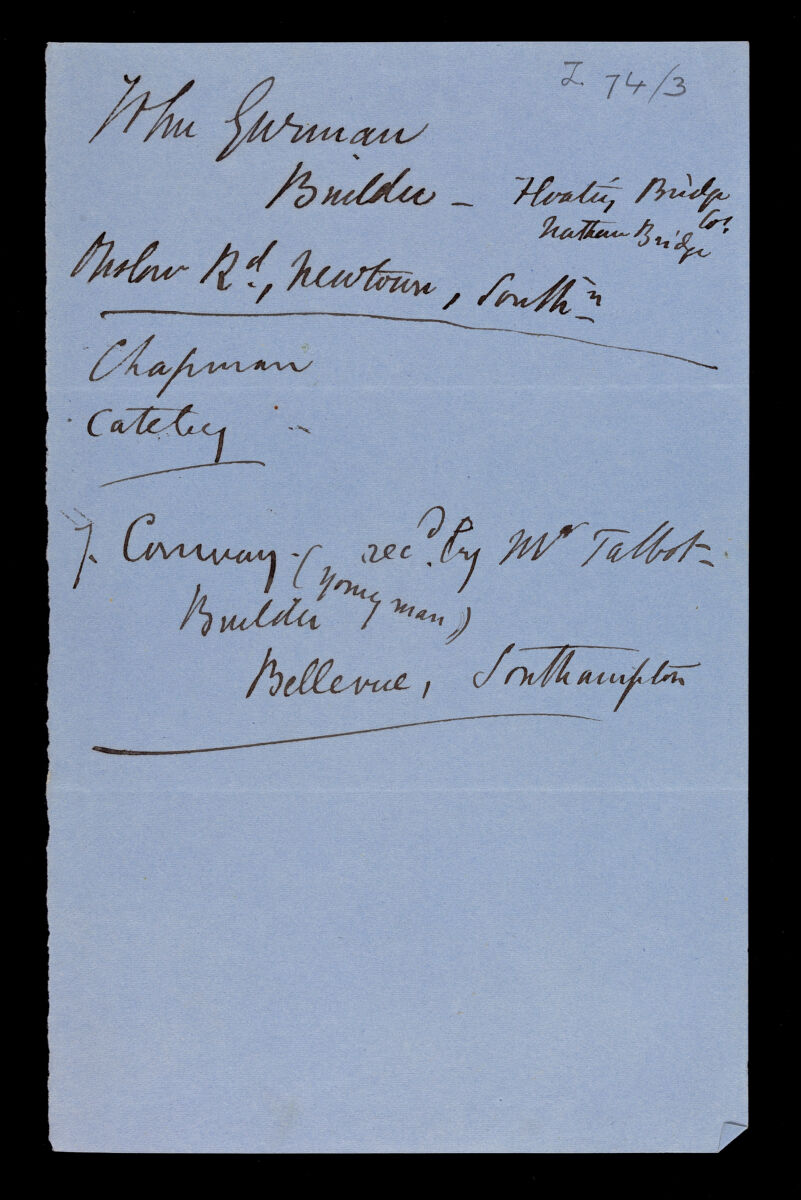 I. 74/3
John Gurman
Builder – Floating Bridge
Co:
Nathan Bridge
Onslow Rd., Newtown, Southn
Chapman
Cateley
J. Conway. (recd. by Mr Talbot –
young man)
Builder
Bellevue, Southampton